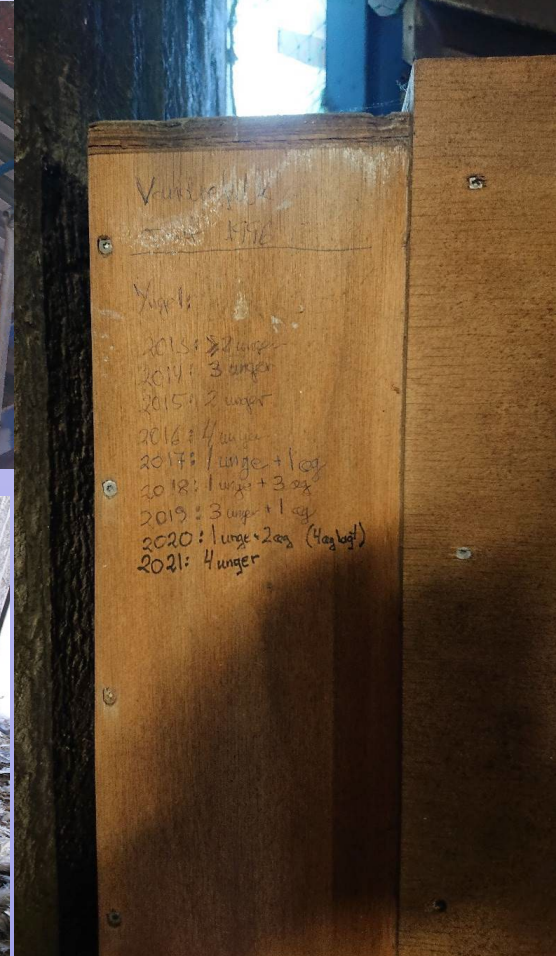 1996
Yngel:
2013: 2 unger
2014: 3 unger
2015: 2 unger
2016: 4 unger
2017: 1 unge + 1 æg
2018: 1 unge + 3 æg
2019: 3 unger + 1 æg
2020: 1 unge + 2 æg (4 æg lagt)
2021: 4 unger